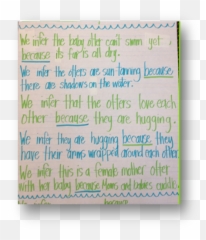 We infer the baby otter can't swim yet
because its fur is all dry.
We infer the otters are sun tanning because
there are shadows on the water.
We infer that the otters love each
other because they are hugging.
We infer they are hugging because they
have their arms wrapped around each other
We infer this is a female mother otter
with her baby because Moms and babies cuddle